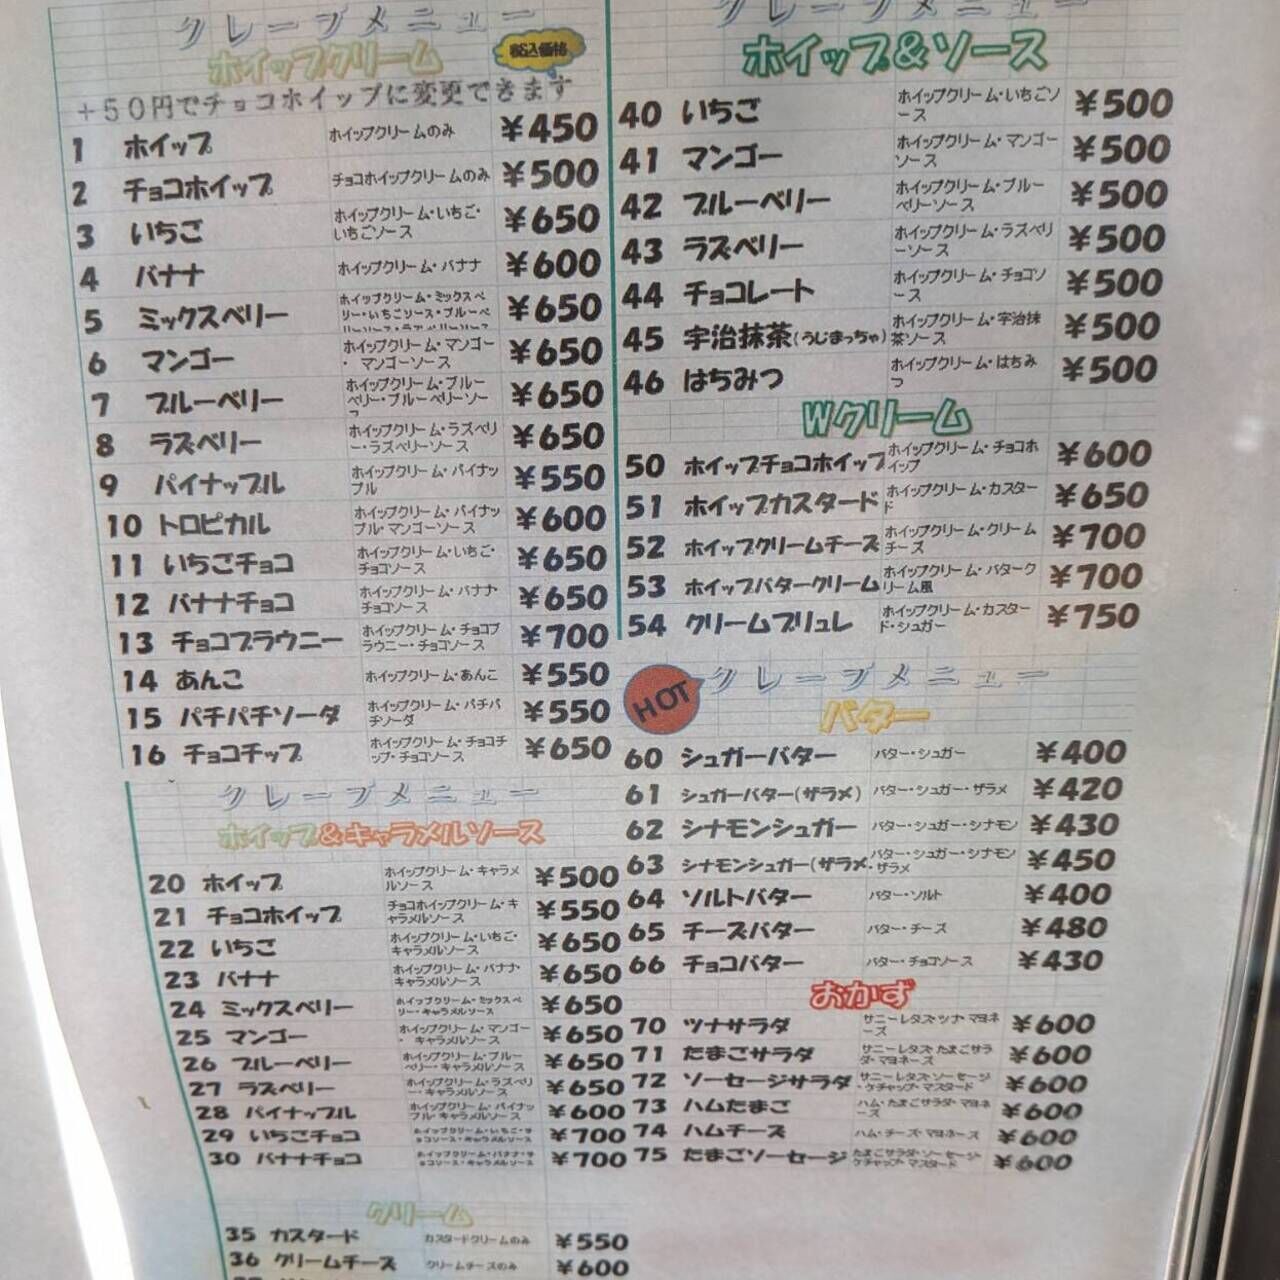 クレープメニュー
ホイップクリーム
税込価格
+50円でチョコホイップに変更できます
1 ホイップ ホイップクリームのみ ¥450
2 チョコホイップ チョコホイップクリームのみ ¥500
3 いちご ホイップクリーム・いちご・いちごソース ¥650
4 バナナ ホイップクリーム・バナナ ¥600
5 ミックスベリー ホイップクリーム・ミックスベリー・いちごソース・ブルーベリーソース・ラズベリーソース ¥650
6 マンゴー ホイップクリーム・マンゴー・マンゴーソース ¥650
7 ブルーベリー ホイップクリーム・ブルーベリー・ブルーベリーソース ¥650
8 ラズベリー ホイップクリーム・ラズベリー・ラズベリーソース ¥650
9 パイナップル ホイップクリーム・パイナップル ¥550
10 トロピカル ホイップクリーム・パイナップル・マンゴーソース ¥600
11 いちごチョコ ホイップクリーム・いちご・チョコソース ¥650
12 バナナチョコ ホイップクリーム・バナナ・チョコソース ¥650
13 チョコブラウニー ホイップクリーム・チョコブラウニー・チョコソース ¥700
14 あんこ ホイップクリーム・あんこ ¥550
15 パチパチソーダ ホイップクリーム・パチパチソーダ ¥550
16 チョコチップ ホイップクリーム・チョコチップ・チョコソース ¥650
クレープメニュー
ホイップ&キャラメルソース
20 ホイップ ホイップクリーム・キャラメルソース ¥500
21 チョコホイップ チョコホイップクリーム・キャラメルソース ¥550
22 いちご ホイップクリーム・いちご・キャラメルソース ¥650
23 バナナ ホイップクリーム・バナナ・キャラメルソース ¥650
24 ミックスベリー ホイップクリーム・ミックスベリー・キャラメルソース ¥650
25 マンゴー ホイップクリーム・マンゴー・キャラメルソース ¥650
26 ブルーベリー ホイップクリーム・ブルーベリー・キャラメルソース ¥650
27 ラズベリー ホイップクリーム・ラズベリー・キャラメルソース ¥650
28 パイナップル ホイップクリーム・パイナップル・キャラメルソース ¥600
29 いちごチョコ ホイップクリーム・いちご・チョコソース・キャラメルソース ¥700
30 バナナチョコ ホイップクリーム・バナナ・チョコソース・キャラメルソース ¥700
クリーム
35 カスタード カスタードクリームのみ ¥550
36 クリームチーズ クリームチーズのみ ¥600
クレープメニュー
ホイップ&ソース
40 いちご ホイップクリーム・いちごソース ¥500
41 マンゴー ホイップクリーム・マンゴーソース ¥500
42 ブルーベリー ホイップクリーム・ブルーベリーソース ¥500
43 ラズベリー ホイップクリーム・ラズベリーソース ¥500
44 チョコレート ホイップクリーム・チョコソース ¥500
45 宇治抹茶(うじまっちゃ) ホイップクリーム・宇治抹茶ソース ¥500
46 はちみつ ホイップクリーム・はちみつ ¥500
Wクリーム
50 ホイップチョコホイップ ホイップクリーム・チョコホイップ ¥600
51 ホイップカスタード ホイップクリーム・カスタード ¥650
52 ホイップクリームチーズ ホイップクリーム・クリームチーズ ¥700
53 ホイップバタークリーム ホイップクリーム・バタークリーム風 ¥700
54 クリームブリュレ ホイップクリーム・カスタード・シュガー ¥750
HOT クレープメニュー
バター
60 シュガーバター バター・シュガー ¥400
61 シュガーバター(ザラメ) バター・シュガー・ザラメ ¥420
62 シナモンシュガー バター・シュガー・シナモン ¥430
63 シナモンシュガー(ザラメ バター・シュガー・シナモン・ザラメ ¥450
64 ソルトバター バター・ソルト ¥400
65 チーズバター バター・チーズ ¥480
66 チョコバター バター・チョコソース ¥430
おかず
70 ツナサラダ サニーレタス・ツナ・マヨネーズ ¥600
71 たまごサラダ サニーレタス・たまごサラダ・マヨネーズ ¥600
72 ソーセージサラダ サニーレタス・ソーセージ・ケチャップ・マスタード ¥600
73 ハムたまご ハム・たまごサラダ・マヨネーズ ¥600
74 ハムチーズ ハム・チーズ・マヨネーズ ¥600
75 たまごソーセージ たまごサラダ・ソーセージ・ケチャップ・マスタード ¥600